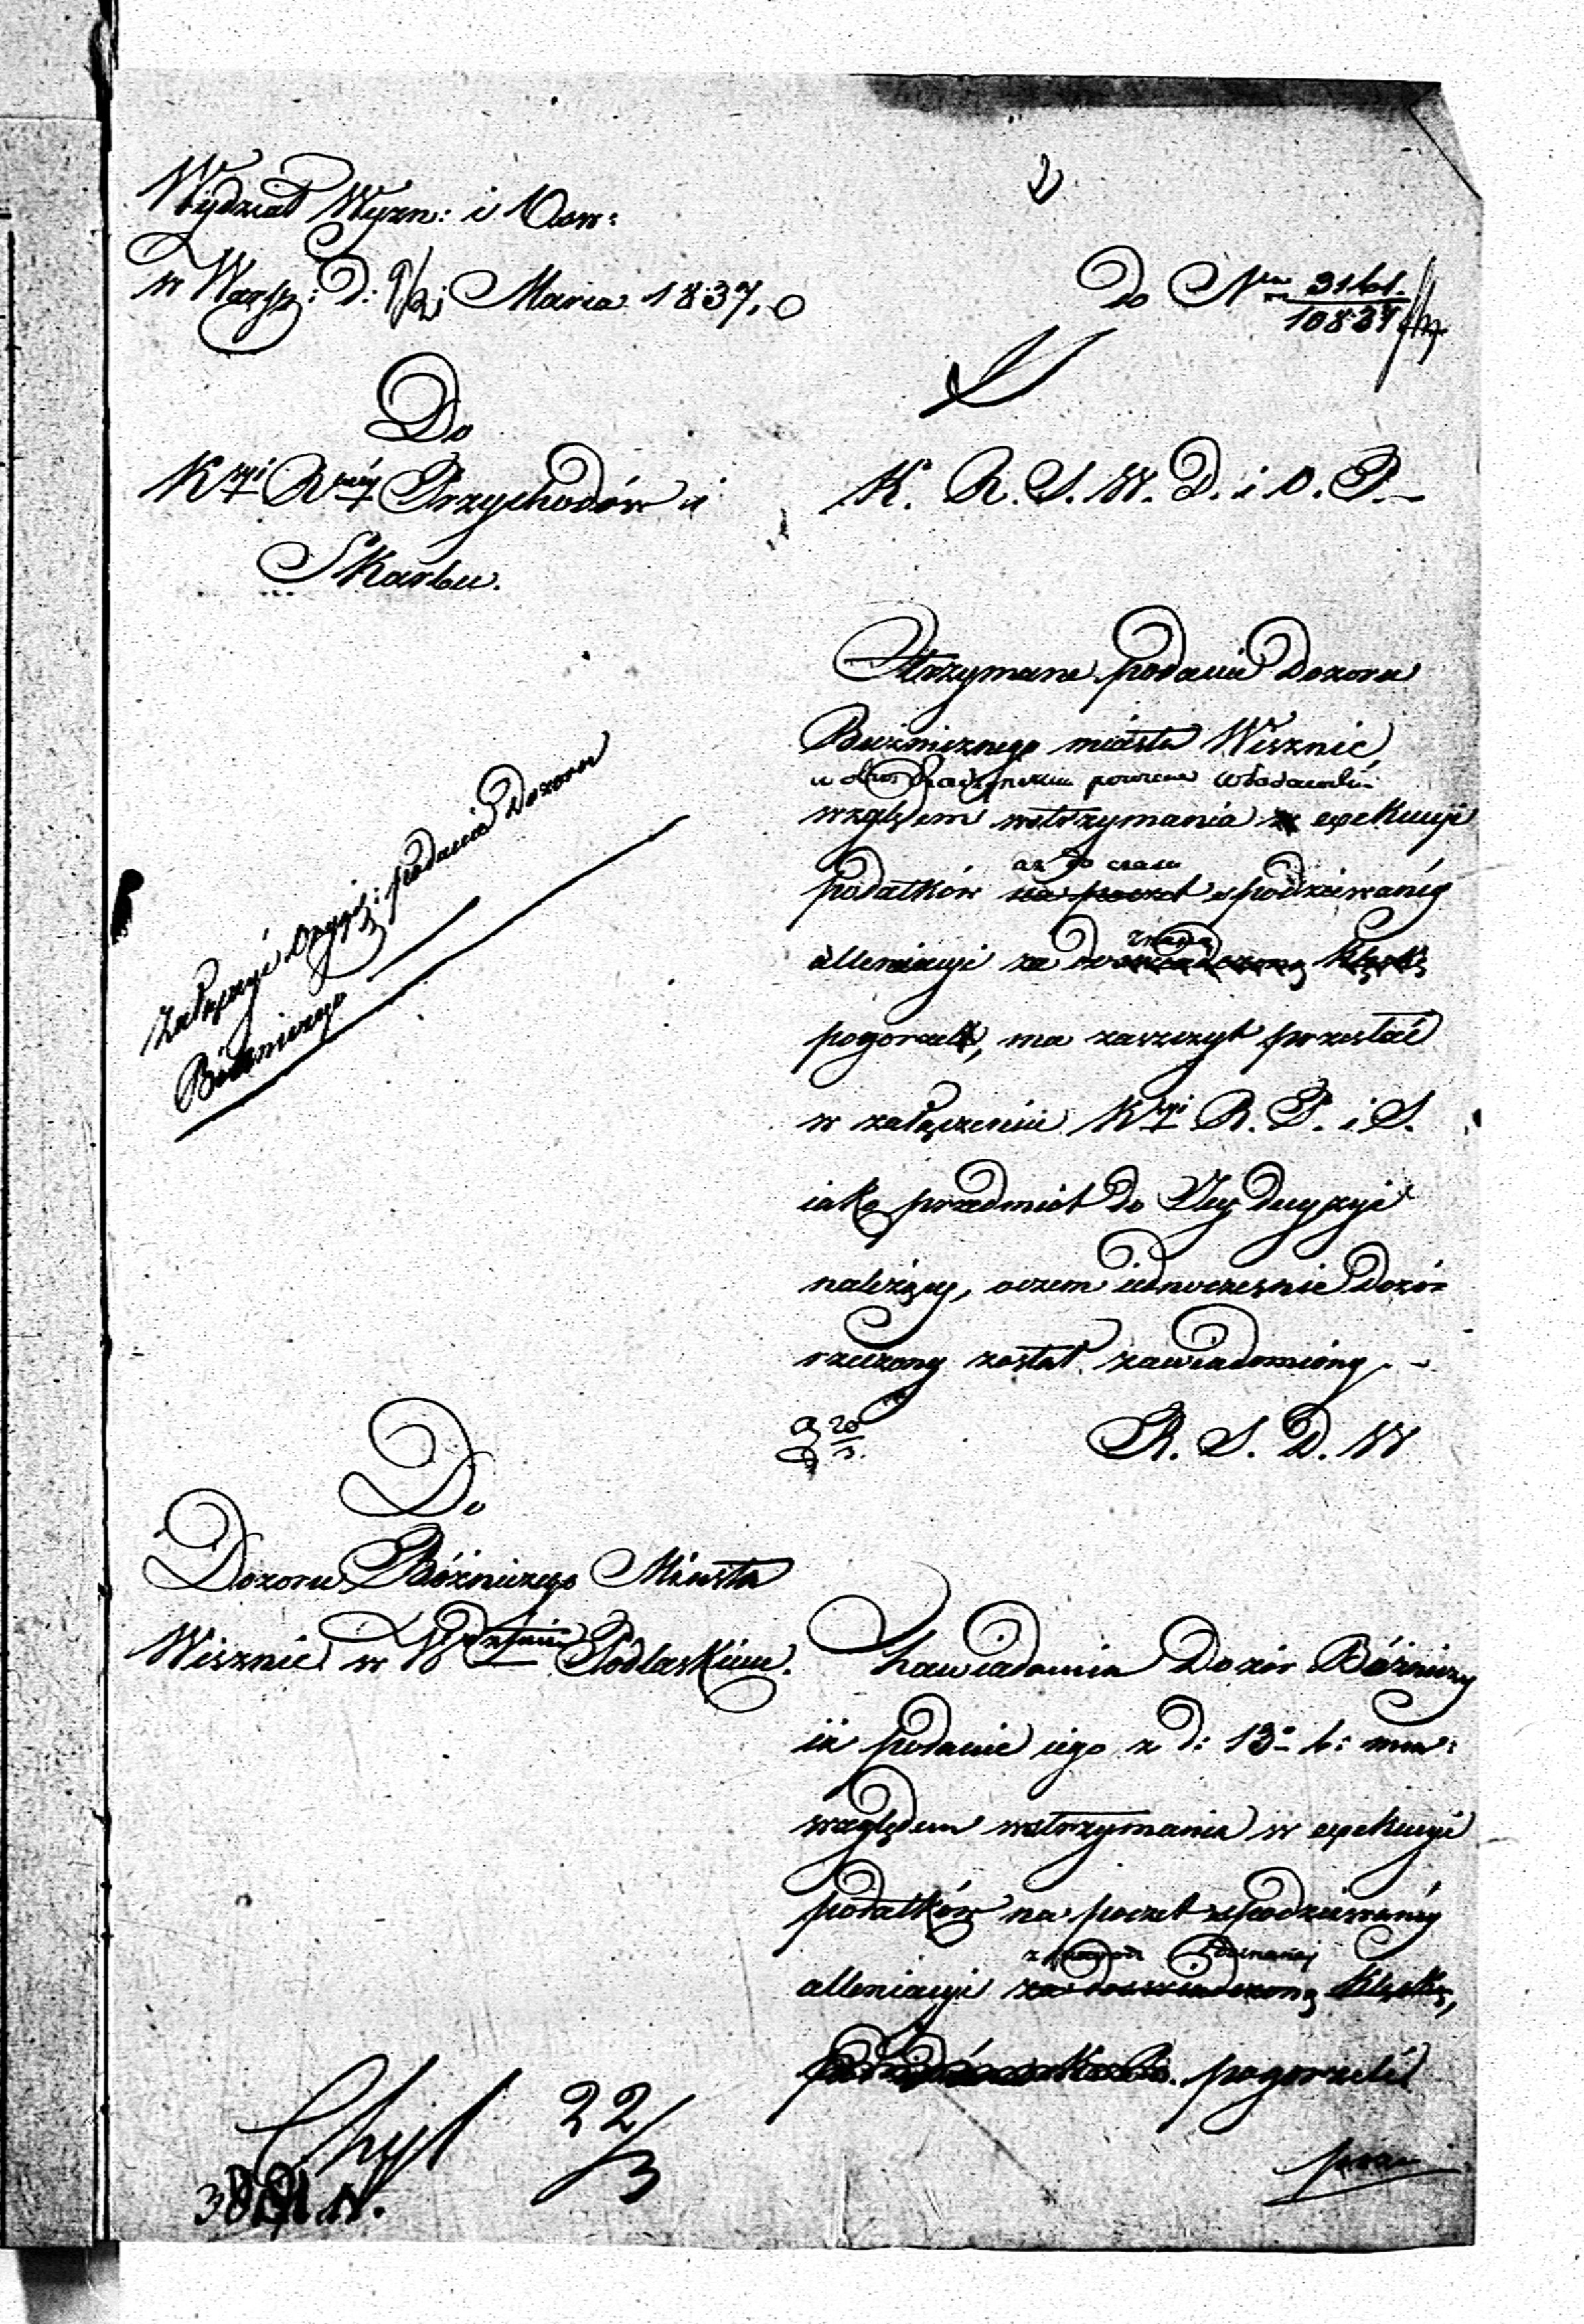 2
Wydział Wyzn: i Ośw:
w Warsz: d: 9/21 Marca 1837.
do Nru 3161.
10837
Do
Kmyi Rwéy Przychodów i
Skarbu.
K. R. S. W. D. i O. P.
Otrzymane podanie Dozoru
Bużnicznego miasta Wisznic,
w Obw: Radzyńskim powiecie Włodawskim
względem wstrzymania exekucyi
az do czasu
podatków na poczet spodziewanéy
allewiacyi za doświadczoną klęskę
pogorzeli, ma zaszczyt przesłać
w załączeniu Kmyi R. P. i S.
iako przedmiot do Jéy decyzyi
należący, oczem iednocześnie Dozór
rzeczony został zawiadomiony. -
20/3.
R. S. D. W
załączyć oryg: podanie Dozoru
Bóżniczego
Do
Dozoru Bóżniczego Miasta
Wisznic w Wdztwie Podlaskim.
Zawiadomia Dozór Bóżniczy
iż podanie iego z d: 13o b: m:
względem wstrzymania w exekucyi
podatków na poczet spodziewanéy
z powodu doznanej
allewiacyi za doświadczoną klęskę,
pogorzeli
22/3